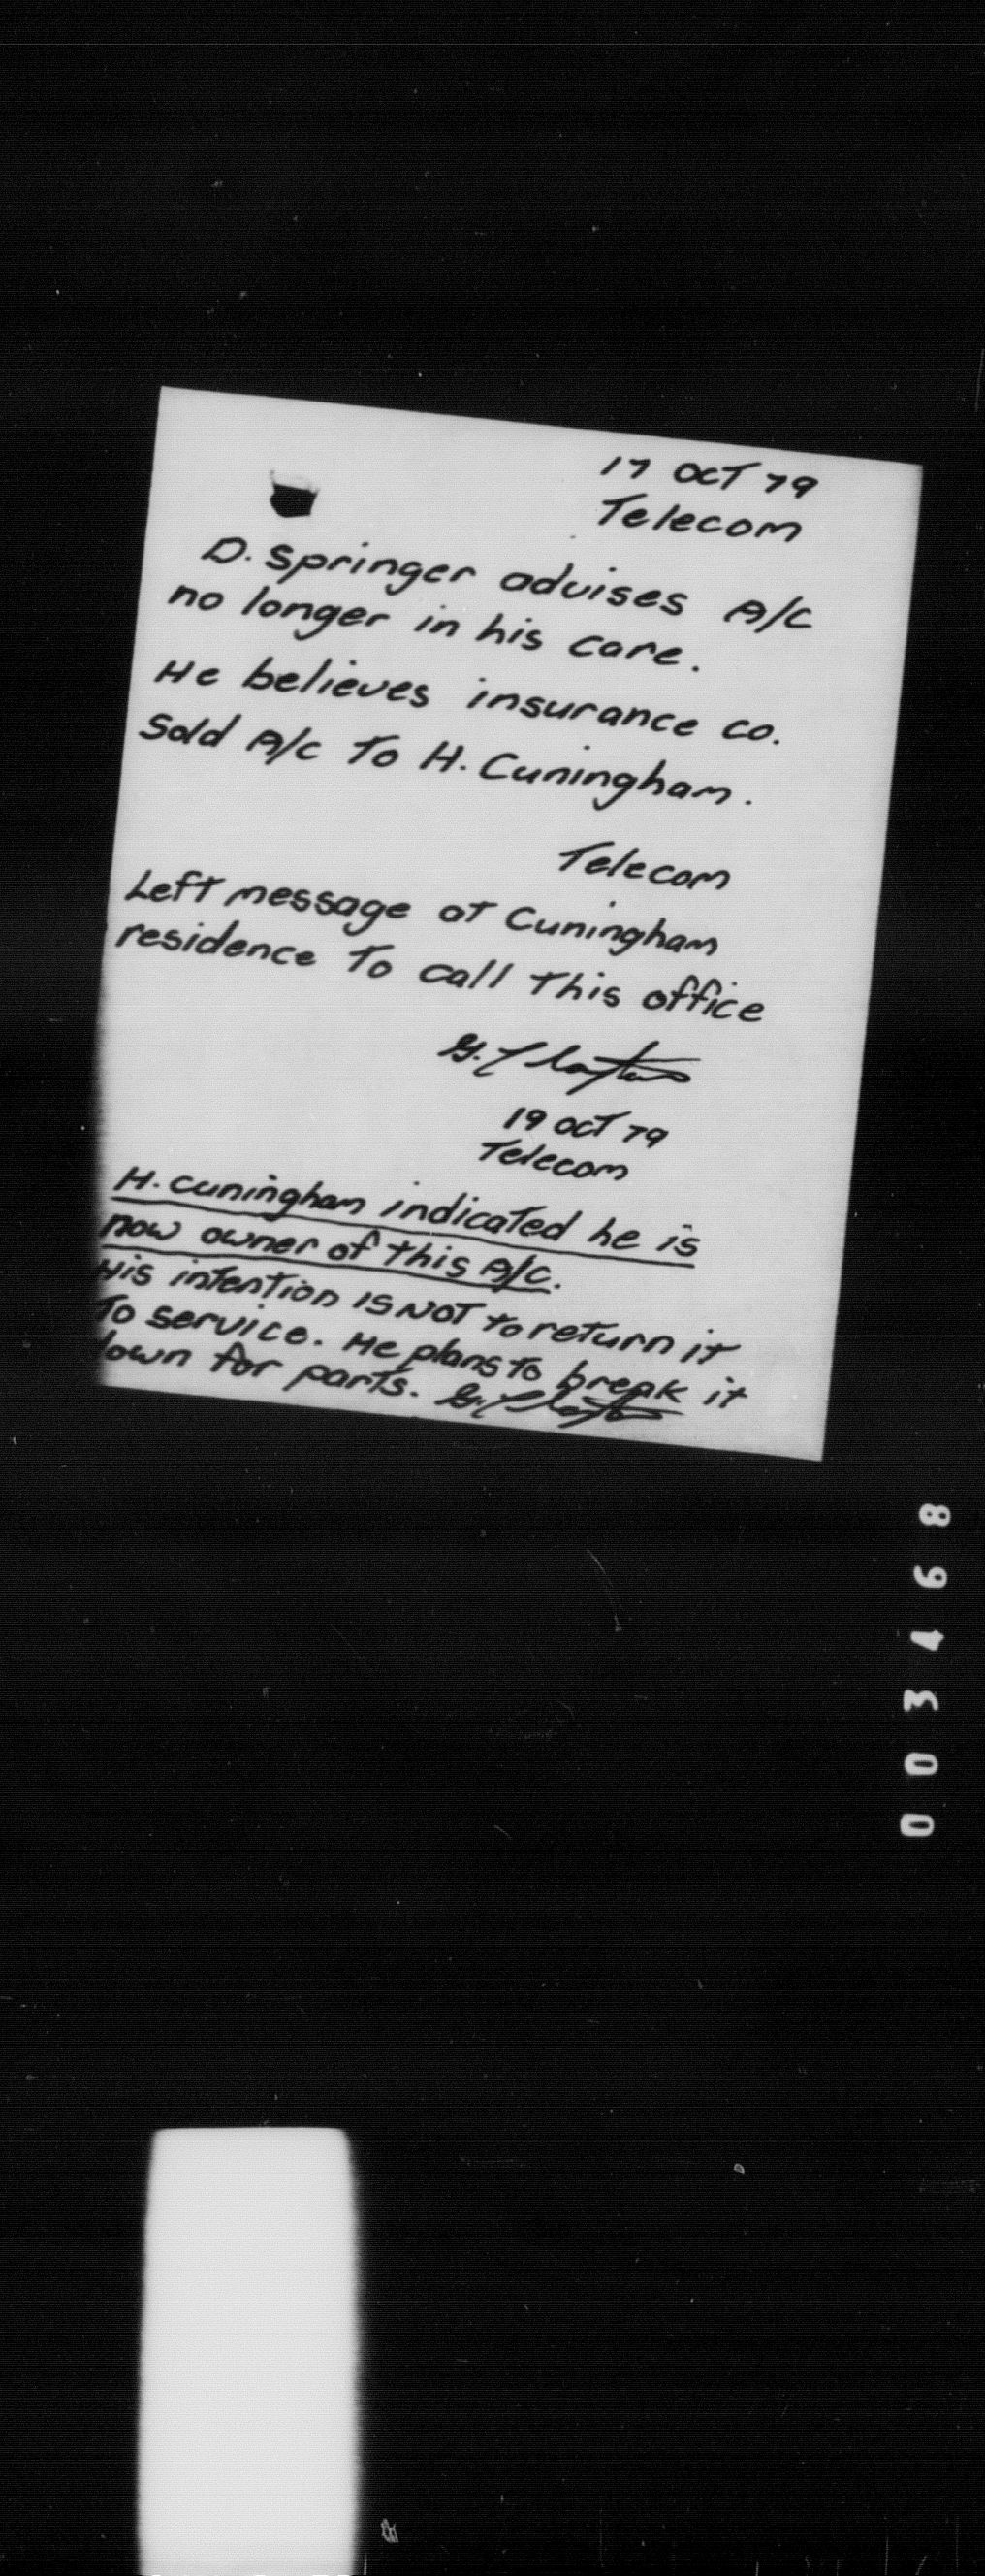 17 OCT 79
Telecom
D. Springer advises A/C
no longer in his care.
He believes insurance co.
Sold A/C To H. Cuningham.
Telecom
Left message at Cuningham
residence To call This office
19 OCT 79
Telecom
H. Cuningham indicated he is
now owner of this A/C.
His intention IS NOT to return it
To service. He plans to break it
down for parts.
003468